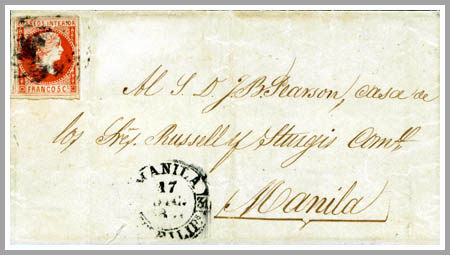 CORREOS INTERIOR
FRANCO 5 C.
Al S. D. J. B. Pearson, casa de
los Sres. Russell y Sturgis Comp.
MANILA
17
31
FILIPS
Manila